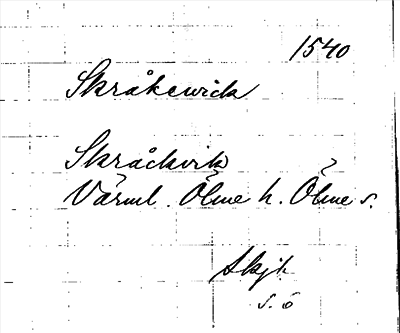 1540
Skråkewick
Skråckvik
Värml. Ölme h. Ölme s.
Skjt.
s. ö